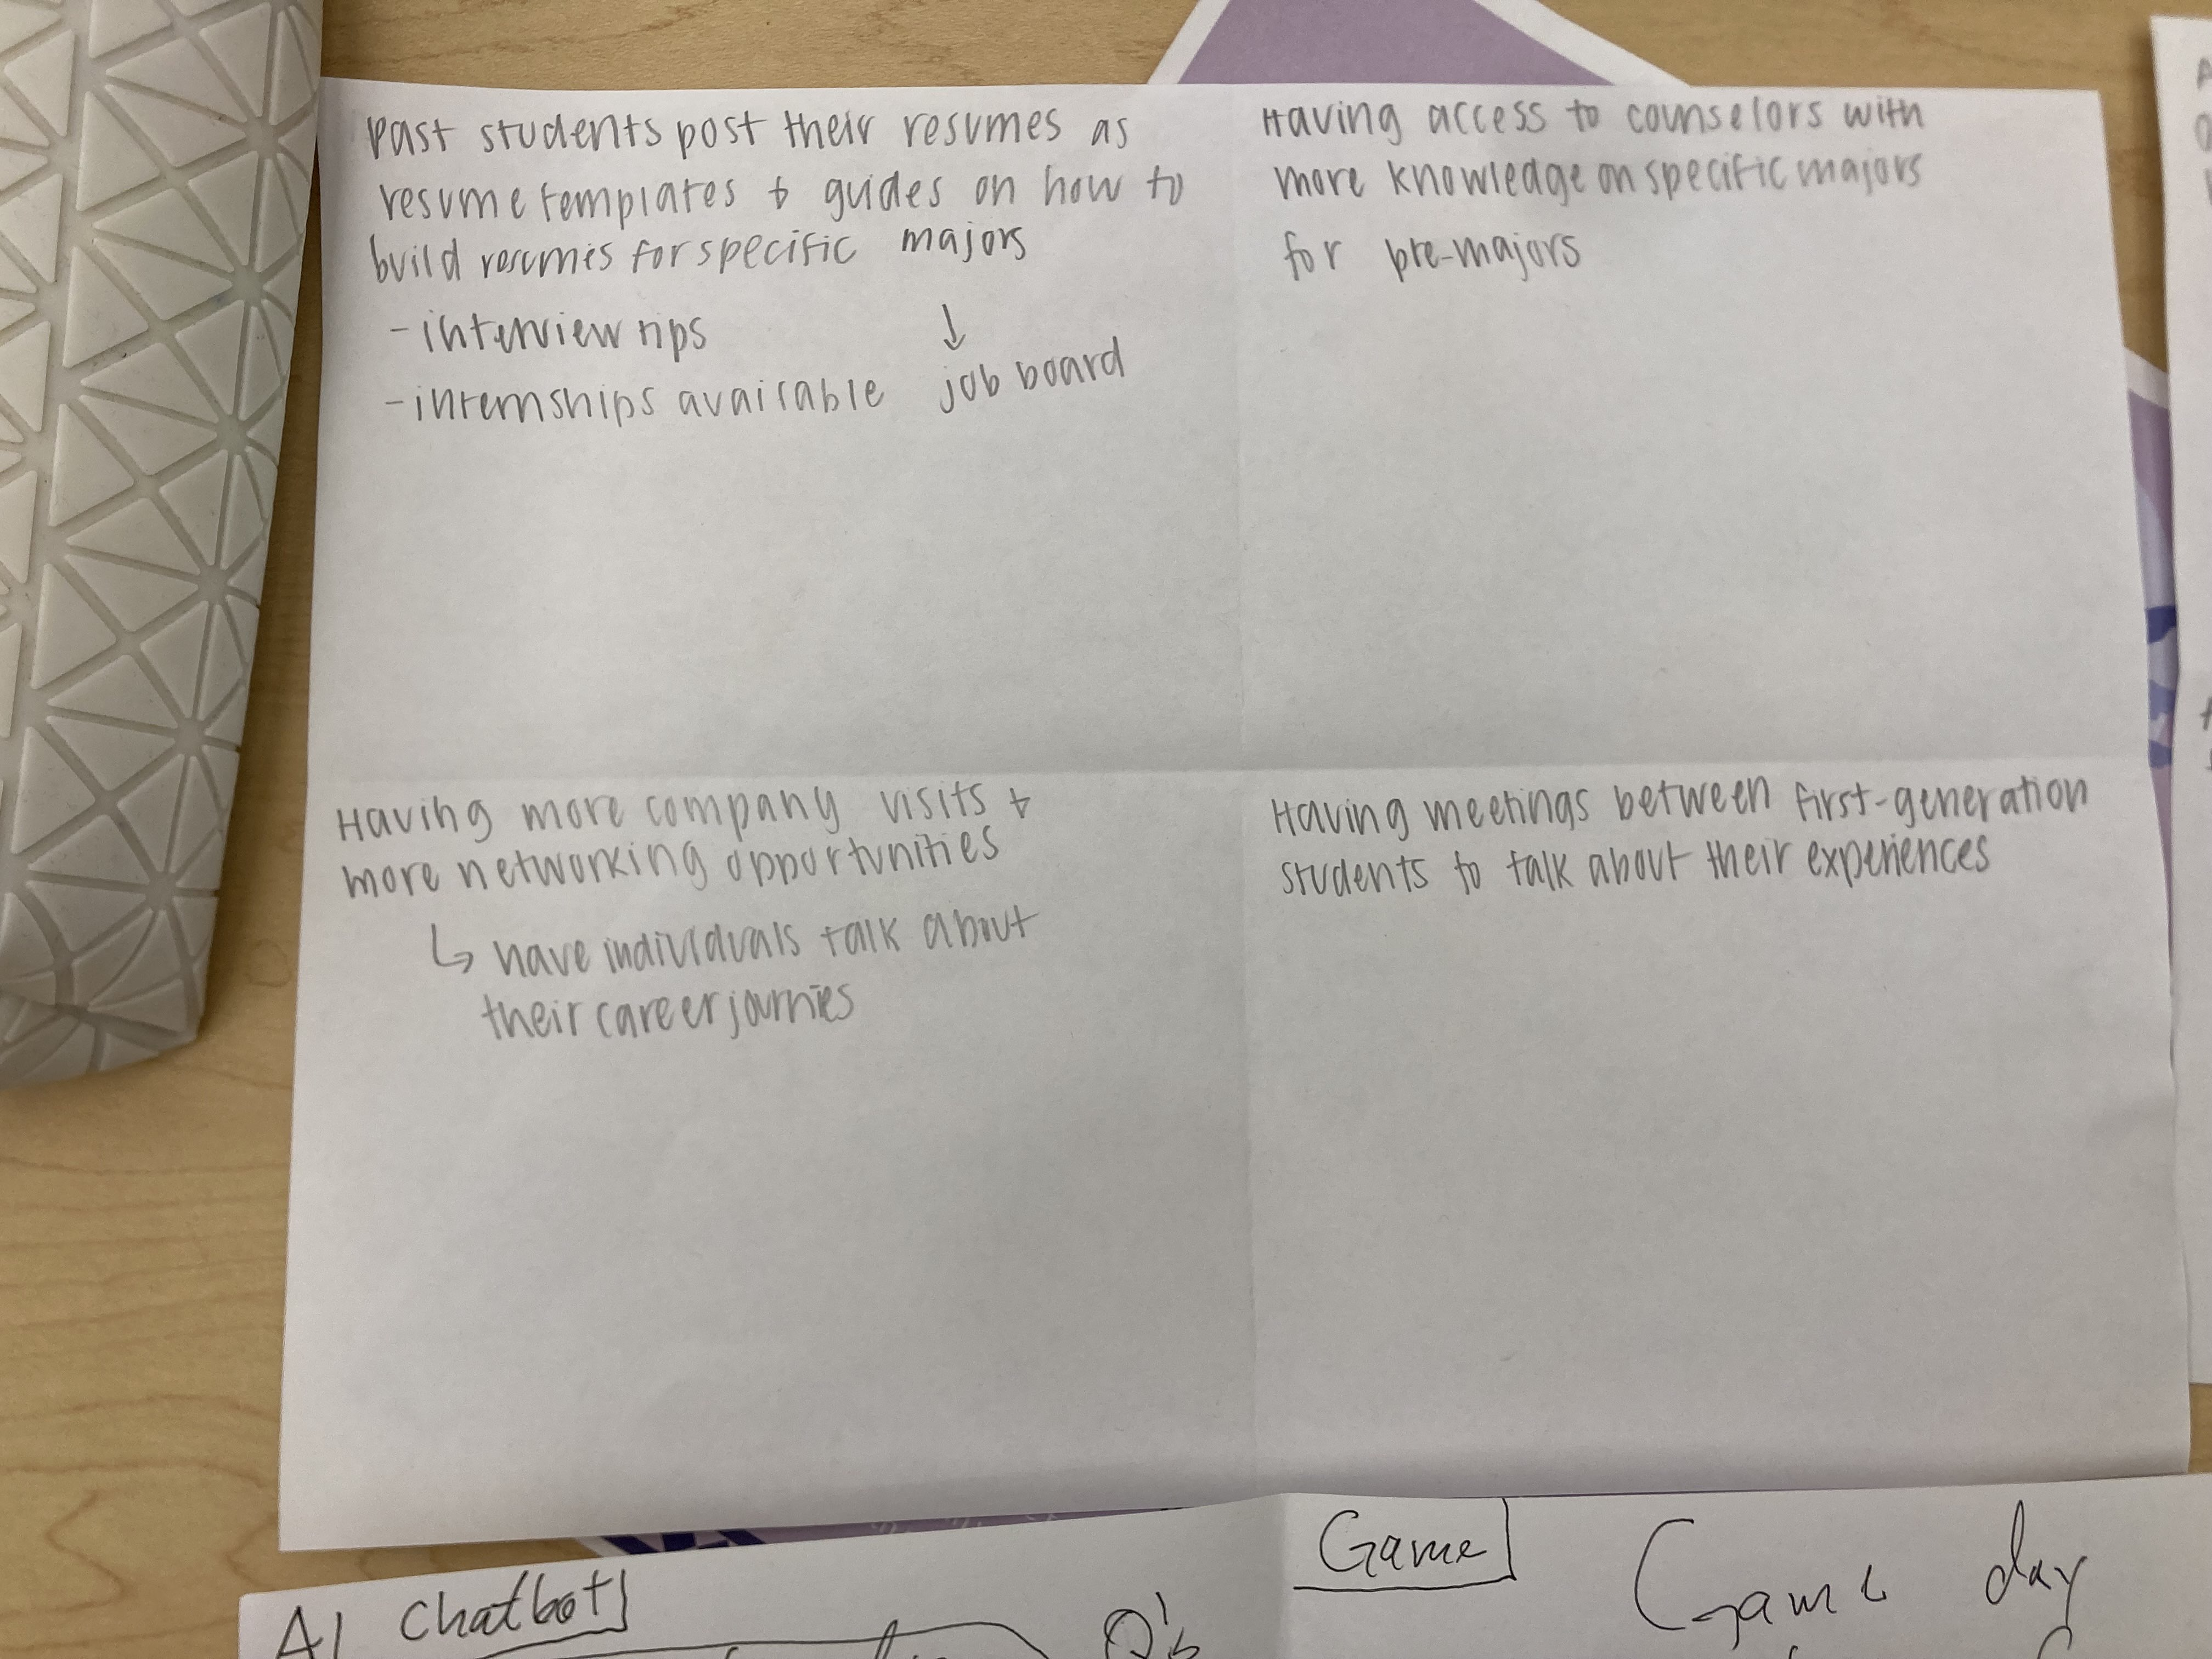 Past students post their resumes as
resume templates + guides on how to
build resumes for specific majors
- interview tips
- internships available
↓
job board
Having access to counselors with
more knowledge on specific majors
for pre-majors
Having more company visits +
more networking opportunities
↳ have individuals talk about
their career journies
Having meetings between first-generation
students to talk about their experiences
AI Chatbot
Q's
Game
Game day